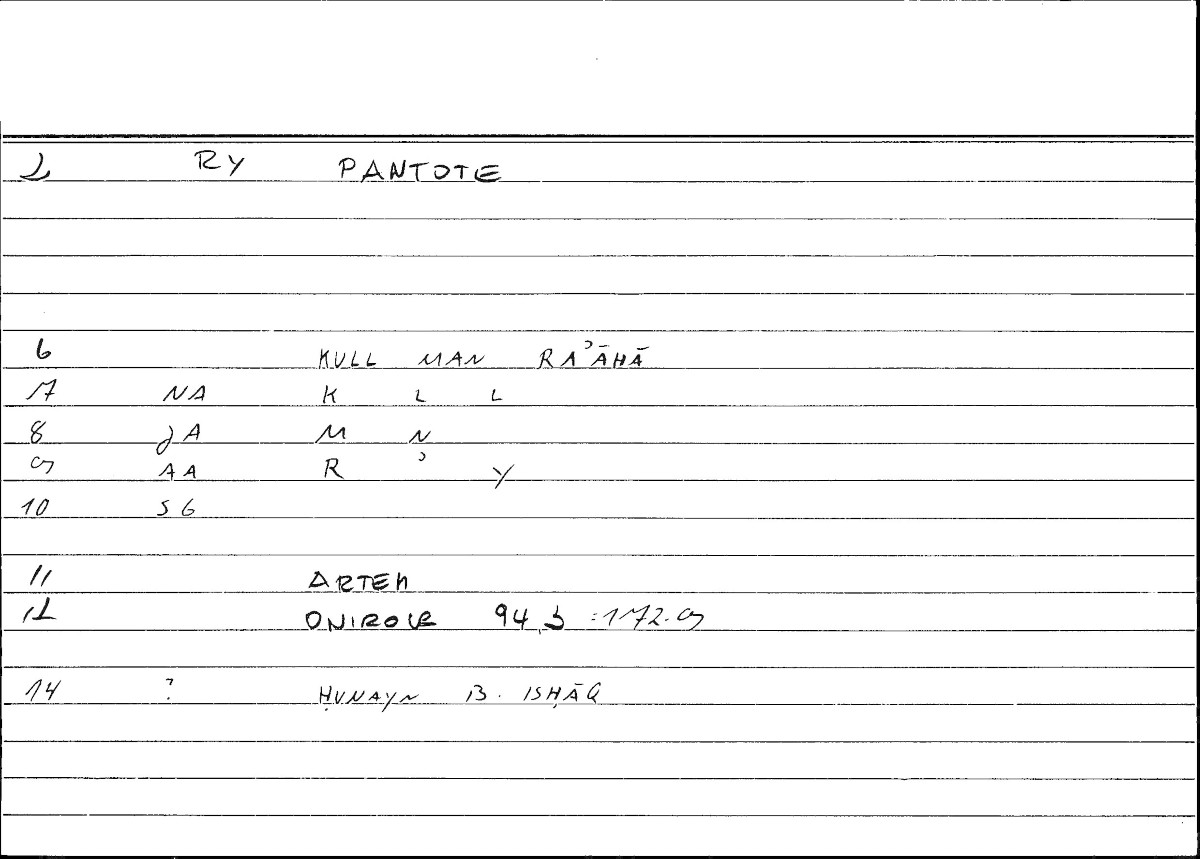 2 RY PANTOTE
6 KULL MAN RAʾĀHĀ
7 NA K L L
8 JA M N
9 AA R ʾ Y
10 SG
11 ARTEM
12 ONIROCR 94,3 :172.9
14 ? ḤUNAYN B. ISḤĀQ